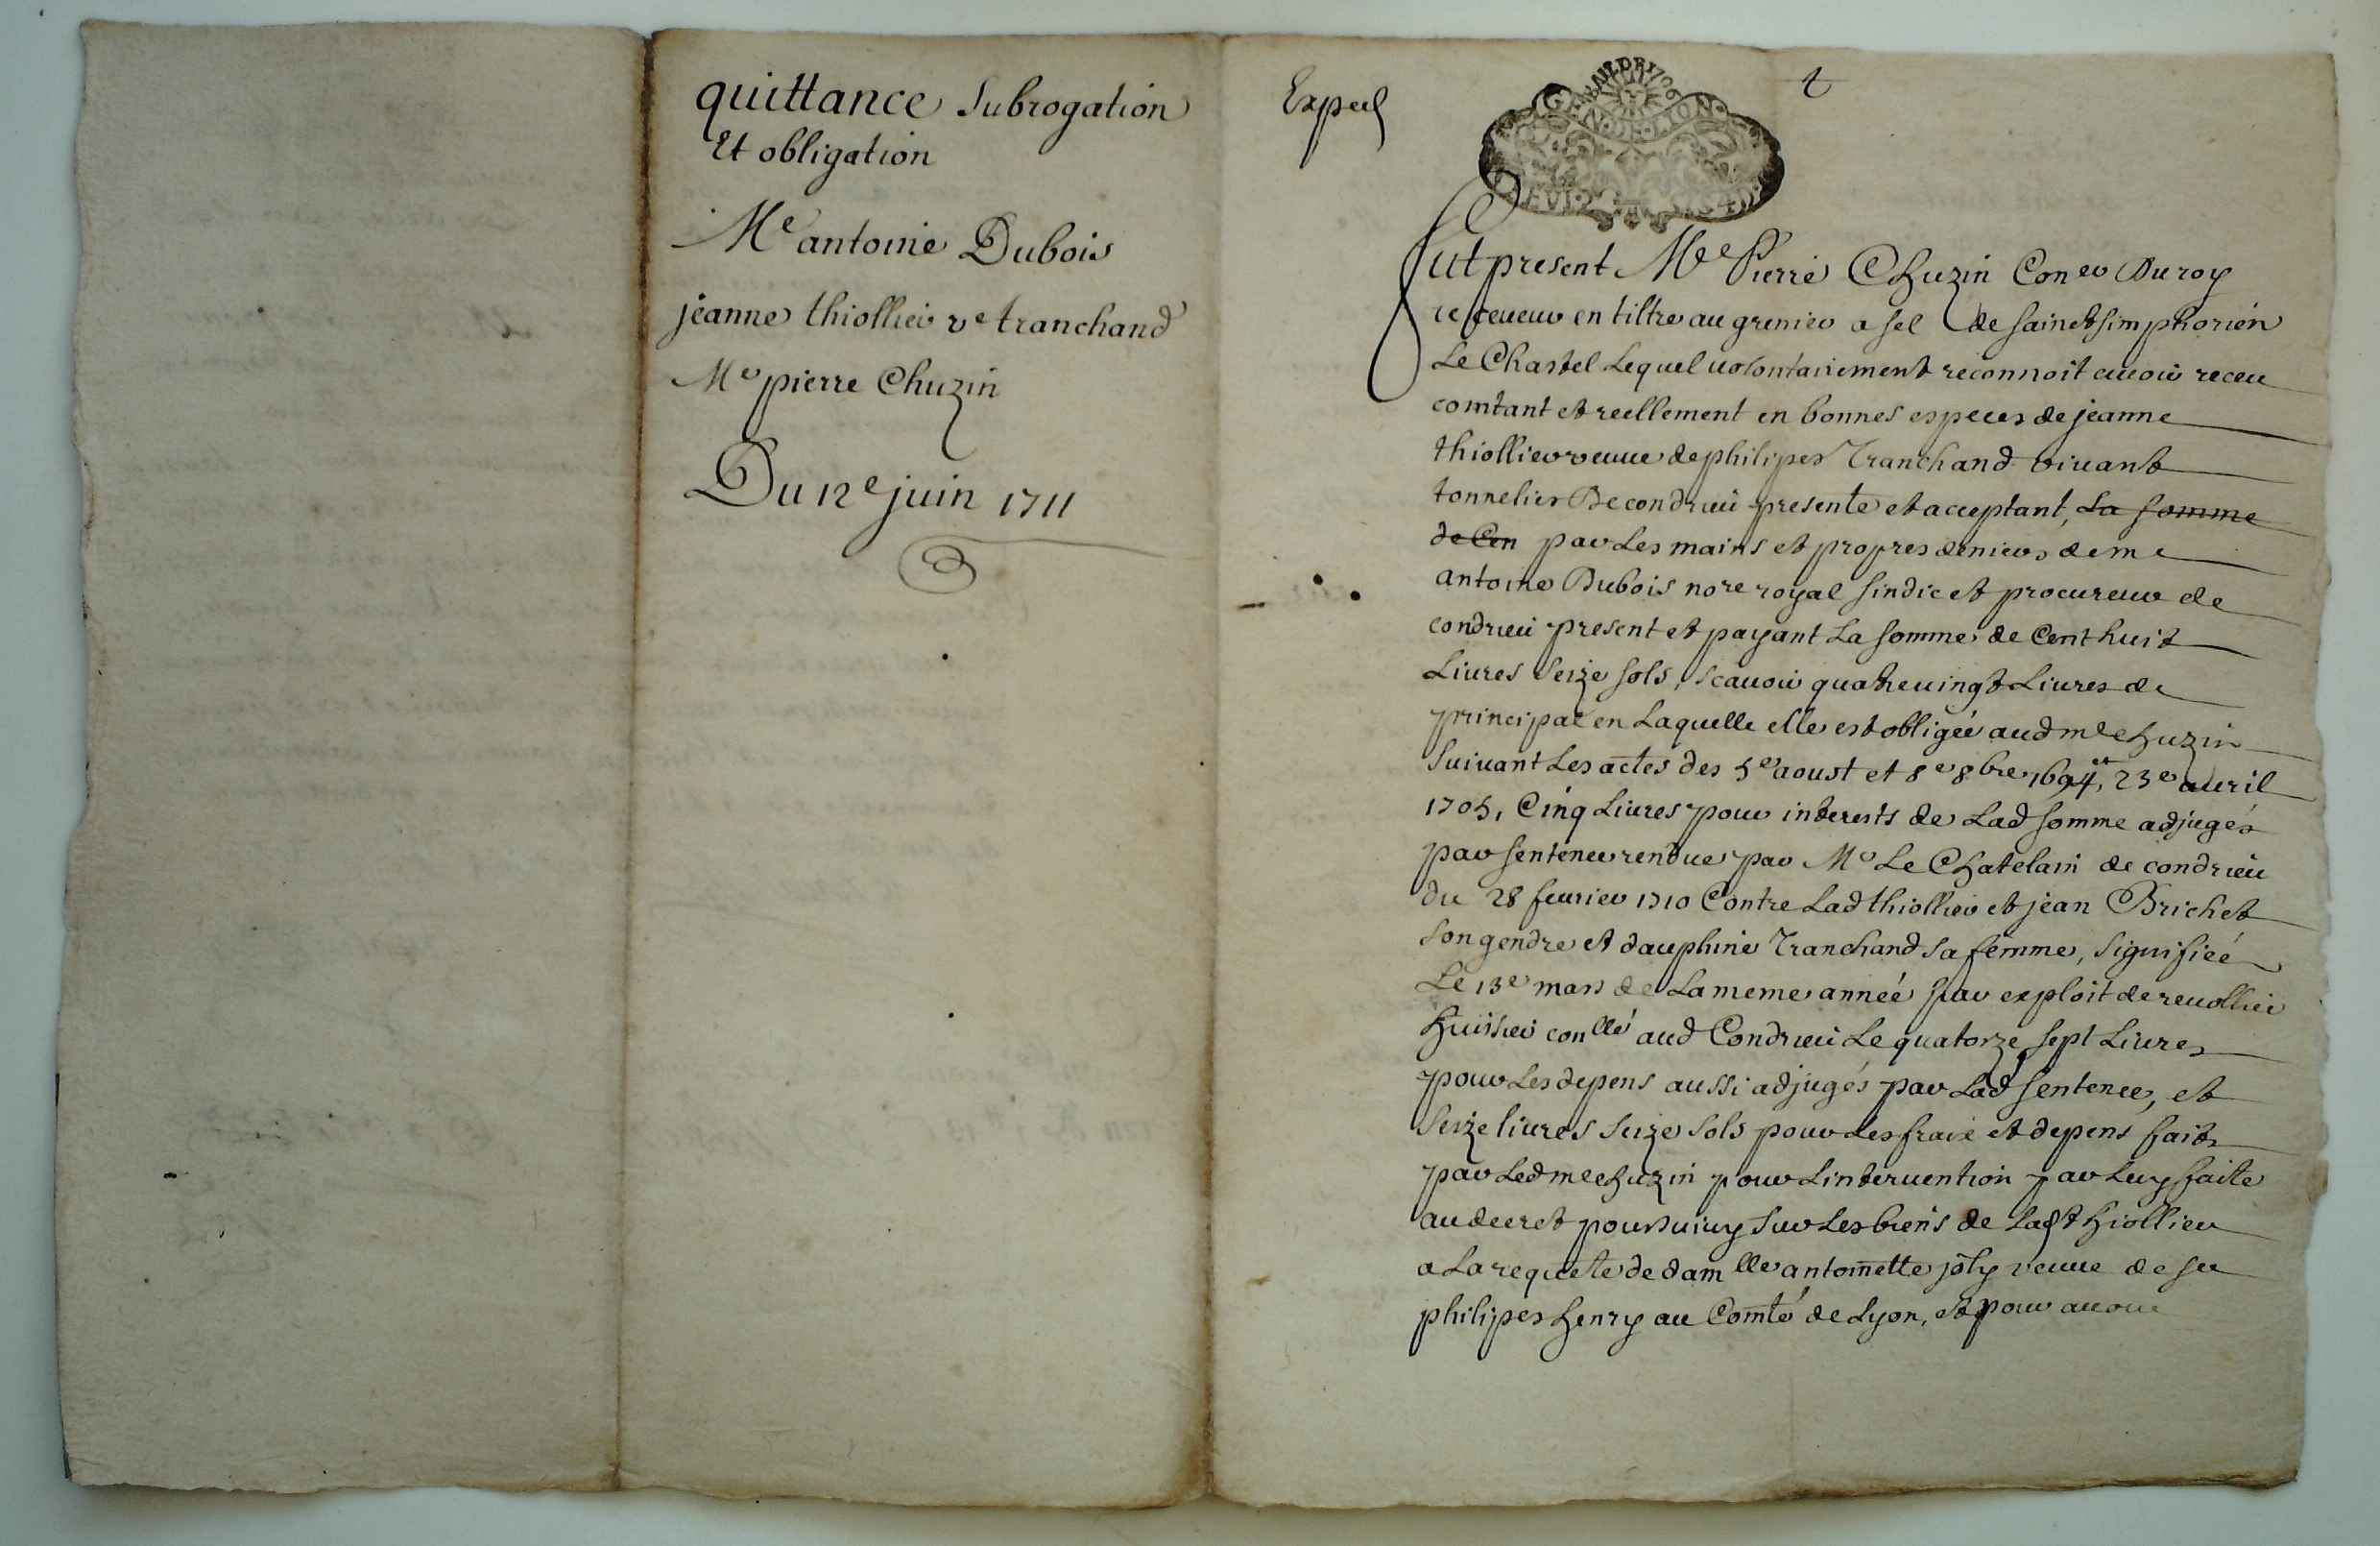 quittance Subrogation
Et obligation
Me antoine Dubois
jeanne thiollier ve tranchand
Me pierre Chuzin
Du 12e juin 1711
Exped
GEN DE LYON
Fut present Me Pierre Chuzin Coner Du roy
receveur en tiltre au grenier a sel de sainct simphorien
Le Chastel Lequel volontairement reconnoit avoir receu
comtant et reellement en bonnes especes de jeanne
thiollier veuve de philipes Tranchand vivant
tonnelier De condrieu presente et acceptant, La somme
de Cen par Les mains et propres deniers de me
antoine Dubois nore royal sindic et procureur de
condrieu present et payant La somme de Cent huit
Livres seize sols, scavoir quatrevingt Livres de
principal en Laquelle elle est obligée aud me chuzin
suivant Les actes des 5e aoust et 8e 8bre 1694, et 23e avril
1705, Cinq Livres pour interests de Lad somme adjugés
par sentence rendue par Mr Le Chatelain de condrieu
du 28 fevrier 1710 Contre Lad thiollier et jean Brichet
son gendre et dauphine Tranchand sa femme, signifiée
Le 13e mars de La meme année par exploit de revollier
huissier conllé aud Condrieu Le quatorze, sept Livres
pour Les depens aussi adjugés par Lad sentence, et
seize livres seize sols pour Les fraix et depens faits
par Led me chuzin pour L'intervention par Luy faite
au decret poursuivy sur Les biens de Lad thiollier
a La requete de damlle antoinette joly veuve de feu
philipes henry au Comté de Lyon, et pour avoir